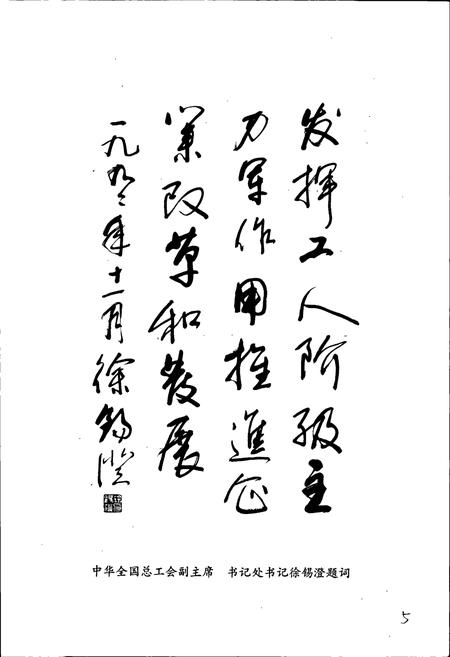 发挥工人阶级主
力军作用推進企
業改革和發展
一九九二年十一月徐锡澄
中华全国总工会副主席　书记处书记徐锡澄题词
5